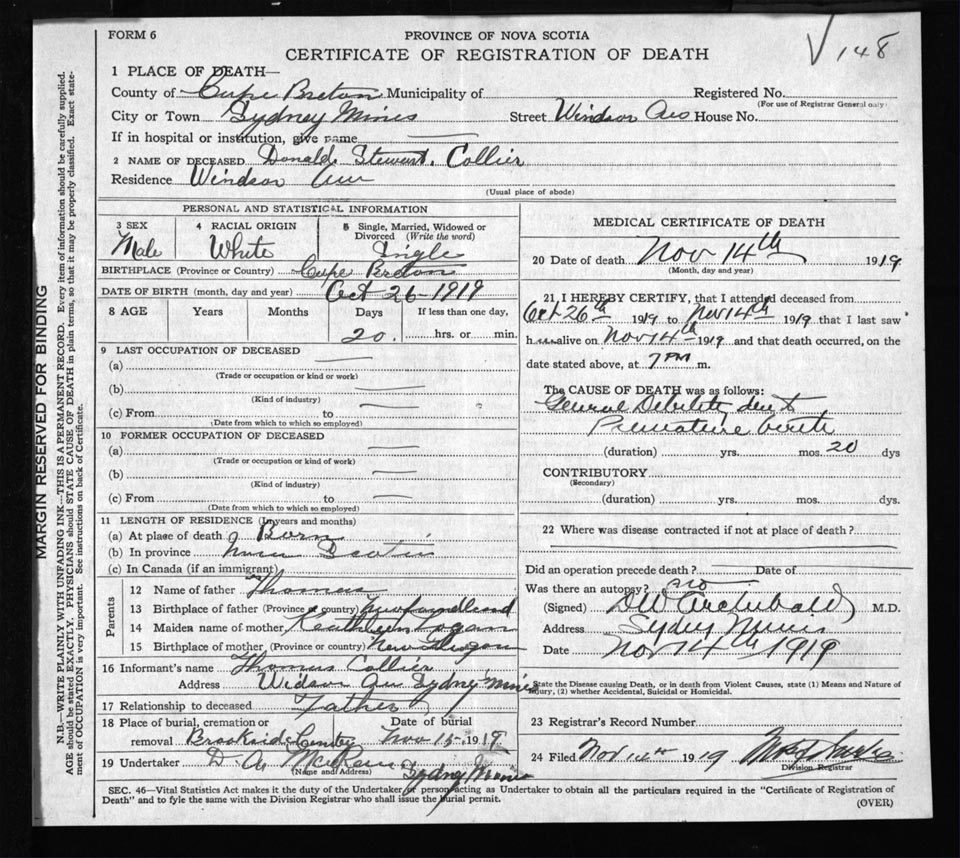 FORM 6
PROVINCE OF NOVA SCOTIA
148
CERTIFICATE OF REGISTRATION OF DEATH
1 PLACE OF DEATH—
County of Cape Breton Municipality of Registered No.
(For use of Registrar General only)
City or Town Sydney Mines Street Windsor Ave House No.
If in hospital or institution, give name
2 NAME OF DECEASED Donald Stewart Collier
Residence Windsor Ave
(Usual place of abode)
PERSONAL AND STATISTICAL INFORMATION
3 SEX 4 RACIAL ORIGIN 5 Single, Married, Widowed or
Divorced (Write the word)
Male White Single
BIRTHPLACE (Province or Country) Cape Breton
DATE OF BIRTH (month, day and year) Oct 26-1919
8 AGE Years Months Days If less than one day,
20 hrs. or min.
9 LAST OCCUPATION OF DECEASED
(a)
(Trade or occupation or kind or work)
(b)
(Kind of industry)
(c) From to
(Date from which to which so employed)
10 FORMER OCCUPATION OF DECEASED
(a)
(Trade or occupation or kind of work)
(b)
(Kind of industry)
(c) From to
(Date from which to which so employed)
11 LENGTH OF RESIDENCE (In years and months)
(a) At place of death Born
(b) In province Nova Scotia
(c) In Canada (if an immigrant)
Parents
12 Name of father Thomas
13 Birthplace of father (Province or country) Newfoundland
14 Maiden name of mother Kathleen Logan
15 Birthplace of mother (Province or country) New Glasgow
16 Informant's name Thomas Collier
Address Widsor Av Sydney Mines
17 Relationship to deceased Father
18 Place of burial, cremation or Date of burial
removal Brookside Nov 15 1919
19 Undertaker D. A. Sydney Mines
(Name and Address)
MEDICAL CERTIFICATE OF DEATH
20 Date of death Nov 14th 1919
(Month, day and year)
21 I HEREBY CERTIFY, that I attended deceased from
Oct 26th 1919 to Nov 14th 1919 that I last saw
h alive on Nov 14th 1919 and that death occurred, on the
date stated above, at 7 PM m.
The CAUSE OF DEATH was as follows:
General Debility due to
Premature birth
(duration) yrs. mos. 20 dys
CONTRIBUTORY
(Secondary)
(duration) yrs. mos. dys.
22 Where was disease contracted if not at place of death?
Did an operation precede death? Date of
Was there an autopsy? no
(Signed) DW Archibald M.D.
Address Sydney Mines
Date Nov 14th 1919
State the Disease causing Death, or in death from Violent Causes, state (1) Means and Nature of
Injury, (2) whether Accidental, Suicidal or Homicidal.
23 Registrar's Record Number
24 Filed Nov 14th 1919
Division Registrar
SEC. 46—Vital Statistics Act makes it the duty of the Undertaker or person acting as Undertaker to obtain all the particulars required in the "Certificate of Registration of
Death" and to fyle the same with the Division Registrar who shall issue the burial permit.
(OVER)
MARGIN RESERVED FOR BINDING
N.B.—WRITE PLAINLY WITH UNFADING INK—THIS IS A PERMANENT RECORD. Every item of information should be carefully supplied.
AGE should be stated EXACTLY. PHYSICIANS should STATE CAUSE OF DEATH in plain terms, so that it may be properly classified. Exact state-
ment of OCCUPATION is very important. See instructions on back of Certificate.